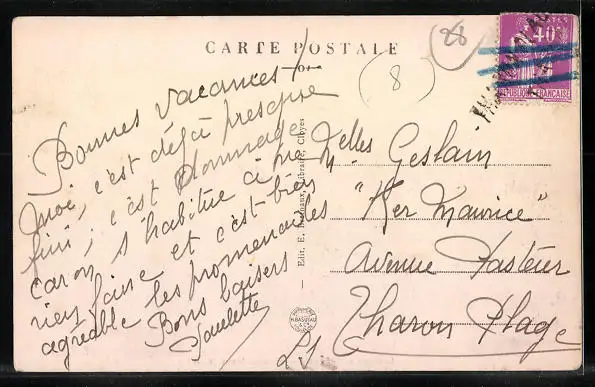 CARTE POSTALE
28
(8)
40c
POSTES
REPUBLIQUE FRANCAISE
Bonnes vacances !
moi, c'est déjà presque
fini, c'est dommage
car on s'habitue à ne
rien faire et c'est bien
agréable les promenades
Bons baisers
Paulette
— Edit. E. Libraire, Cloyes
Melles Geslain
"Ker Maurice"
Avenue Pasteur
Tharon Plage